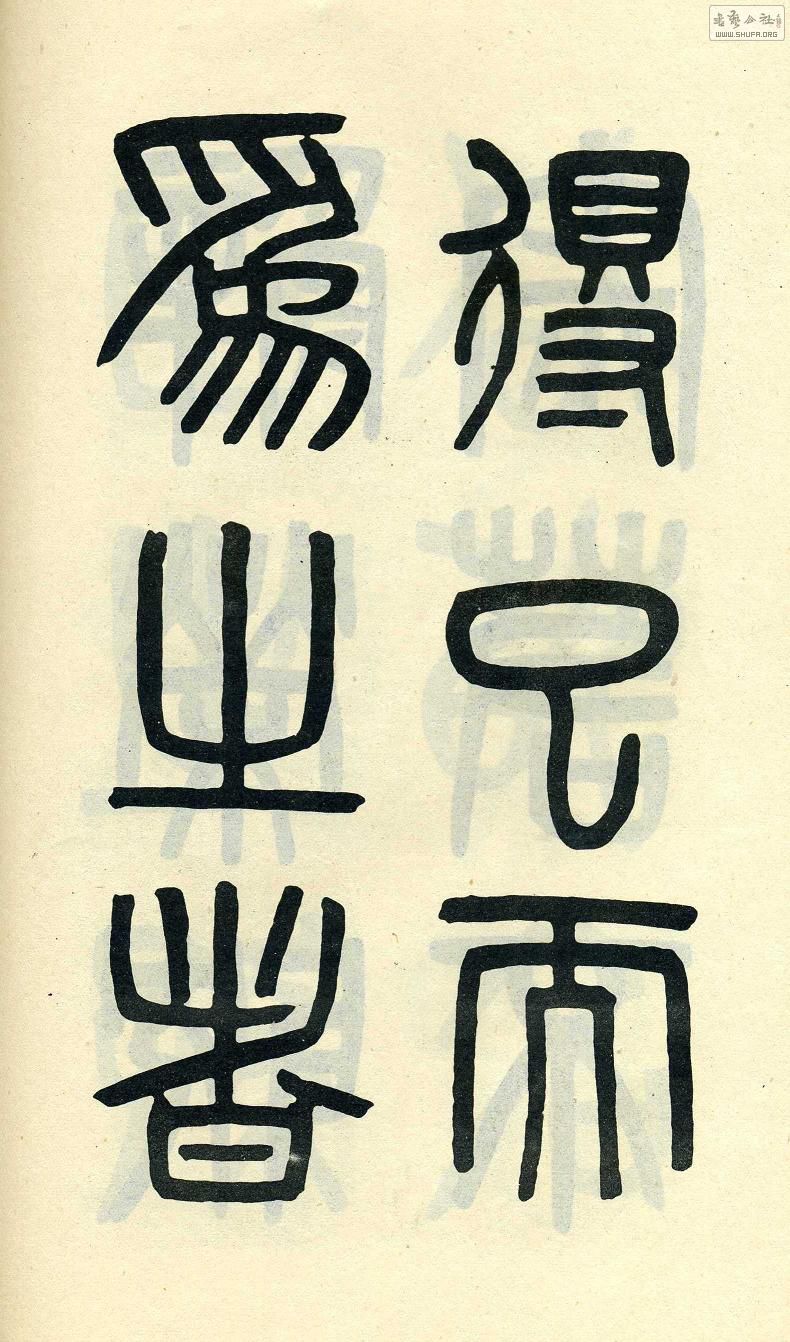 得已而
爲之者
书藝公社
WWW.SHUFA.ORG